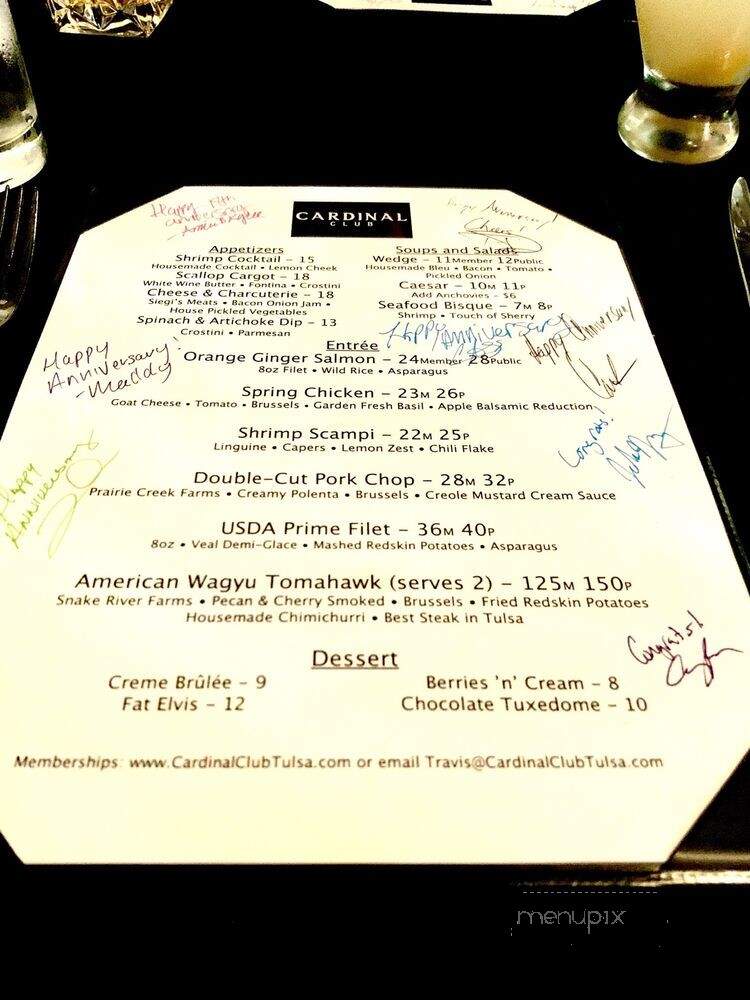 CARDINAL
CLUB
Happy
Anniversary
Happy Anniversary!
Cheers!
Appetizers
Shrimp Cocktail – 15
Housemade Cocktail • Lemon Cheek
Scallop Cargot – 18
White Wine Butter • Fontina • Crostini
Cheese & Charcuterie – 18
Siegi's Meats • Bacon Onion Jam •
House Pickled Vegetables
Spinach & Artichoke Dip – 13
Crostini • Parmesan
Soups and Salads
Wedge – 11Member 12Public
Housemade Bleu • Bacon • Tomato •
Pickled Onion
Caesar – 10M 11P
Add Anchovies – $6
Seafood Bisque – 7M 8P
Shrimp • Touch of Sherry
Happy Anniversary
Happy Anniversary
Happy
Anniversary!
-Maddy
Entrée
Orange Ginger Salmon – 24Member 28Public
8oz Filet • Wild Rice • Asparagus
Spring Chicken – 23M 26P
Goat Cheese • Tomato • Brussels • Garden Fresh Basil • Apple Balsamic Reduction
Shrimp Scampi – 22M 25P
Linguine • Capers • Lemon Zest • Chili Flake
Congrats!
Happy
Anniversary
Double-Cut Pork Chop – 28M 32P
Prairie Creek Farms • Creamy Polenta • Brussels • Creole Mustard Cream Sauce
USDA Prime Filet – 36M 40P
8oz • Veal Demi-Glace • Mashed Redskin Potatoes • Asparagus
American Wagyu Tomahawk (serves 2) – 125M 150P
Snake River Farms • Pecan & Cherry Smoked • Brussels • Fried Redskin Potatoes
Housemade Chimichurri • Best Steak in Tulsa
Congrats!
Dessert
Creme Brûlée – 9
Fat Elvis – 12
Berries 'n' Cream – 8
Chocolate Tuxedome – 10
Memberships: www.CardinalClubTulsa.com or email Travis@CardinalClubTulsa.com
menupix